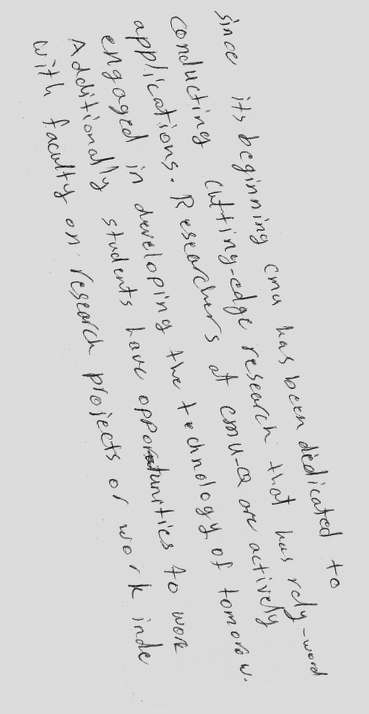 since its beginning cmu has been dedicated to
conducting cutting-edge research that has rely-word
applications. Researchers at cmu-Q are actively
engaged in developing the technology of tomorow.
Additionally students have opportunities to work
with faculty on research projects or work inde